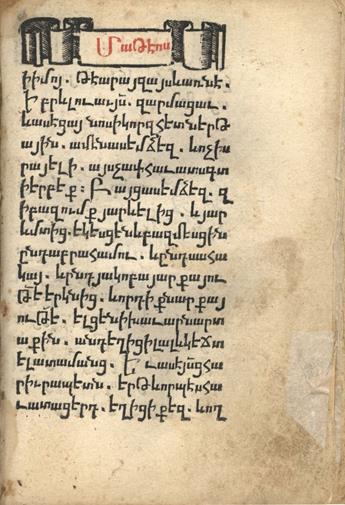 Մաթէոս
իիմոյ. Թէարայզայսևառնէ.
Իբրևլուաւյս. զարմացաւ.
ևասէցայնոսիկորզհետներթ
ային. ամենասեմձեզ. ևոչիս
րայէլի. այսչափհաւատգտ
իերբէք։ Բայցասեմձեզ. զ
իբազումքյարևելից. ևյար
ևմտից. եկեսցենևբազմեսցին
ընդաբրահամու. ևընդսահա
կայ. ևընդյակոբայարքայու
թէերկնից. ևորդիքնարքայ
ութե. ելցենիխաւարնարտ
աքին. անդեղիցիլալևկըճտ
ելատամանց. Եւասէյսցհա
րիւրապետն. երթևորպէսհա
ւատացերդ. եղիցիքեզ. ևող